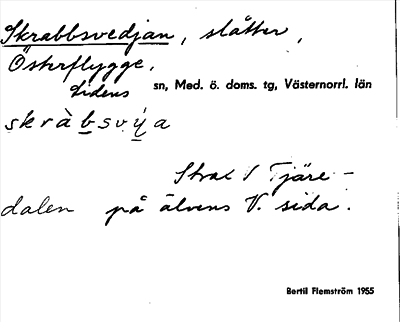 Skrabbsvedjan, slåtter,
Österflygge,
Lidens sn, Med. ö. doms. tg, Västernorrl. län
skràbsvi̇́a
Strax V Tjäre-
dalen på älvens V. sida.
Bertil Flemström 1955